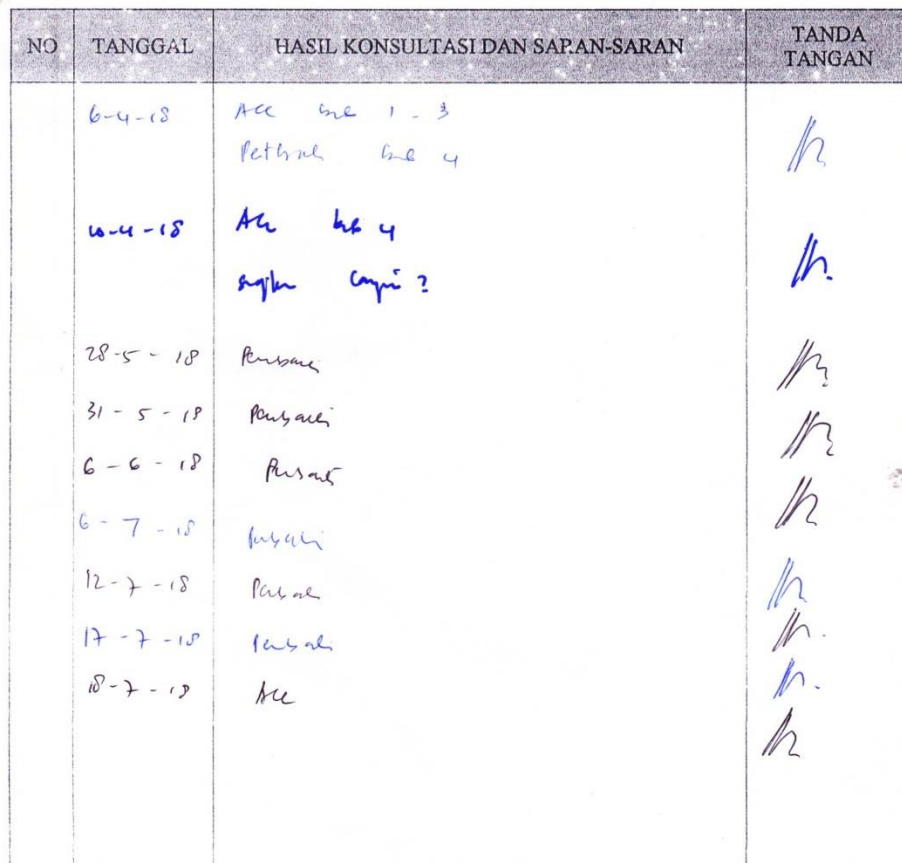 NO TANGGAL HASIL KONSULTASI DAN SARAN-SARAN TANDA TANGAN
6-4-18 Acc bab 1 - 3
bab 4
10-4-18 Acc bab 4
28-5-18 Perbaiki
31-5-18 Perbaiki
6-6-18 Perbaiki
6-7-18 Perbaiki
12-7-18 Perbaiki
17-7-18 Perbaiki
18-7-18 Acc